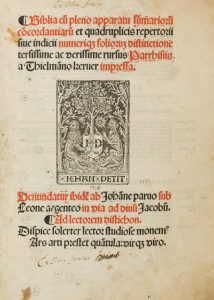 ¶Biblia cũ pleno apparatu sum̃ariorũ
cõcordantiarũ et quadruplicis repertorii
siue indicii numeriq̃ folioruȝ distinctione
tersissime ac verissime rursus Parrhisiis
a Thielmãno keruer impressa.
I P
IEHAN PETIT
Uenundatur ibidẽ ab Johãne paruo sub
Leone argenteo in via ad diuũ Jacobũ.
¶Ad lectorem distichon.
Dispice solerter lector studiose monem⁹
Ars arti prestet quãtula: virq̃ viro.